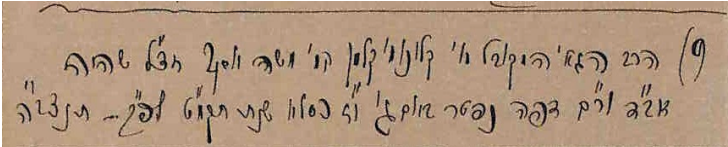 9) הרב הגא' המקובל מ' קלונמי' קלמן במ' משה יוסף חצ"ל שהיה
אב"ד ור"מ דפה נפטר ביום ג' י"ד כסלו שנת תקמ"ט לפ"ק תנצב"ה